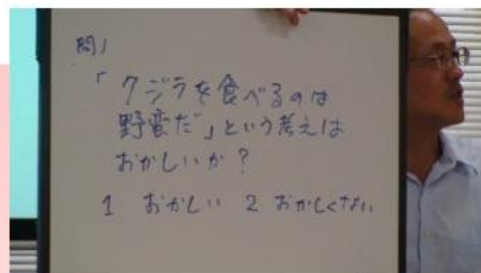 問1
「クジラを食べるのは
野蛮だ」という考えは
おかしいか?
1 おかしい 2 おかしくない